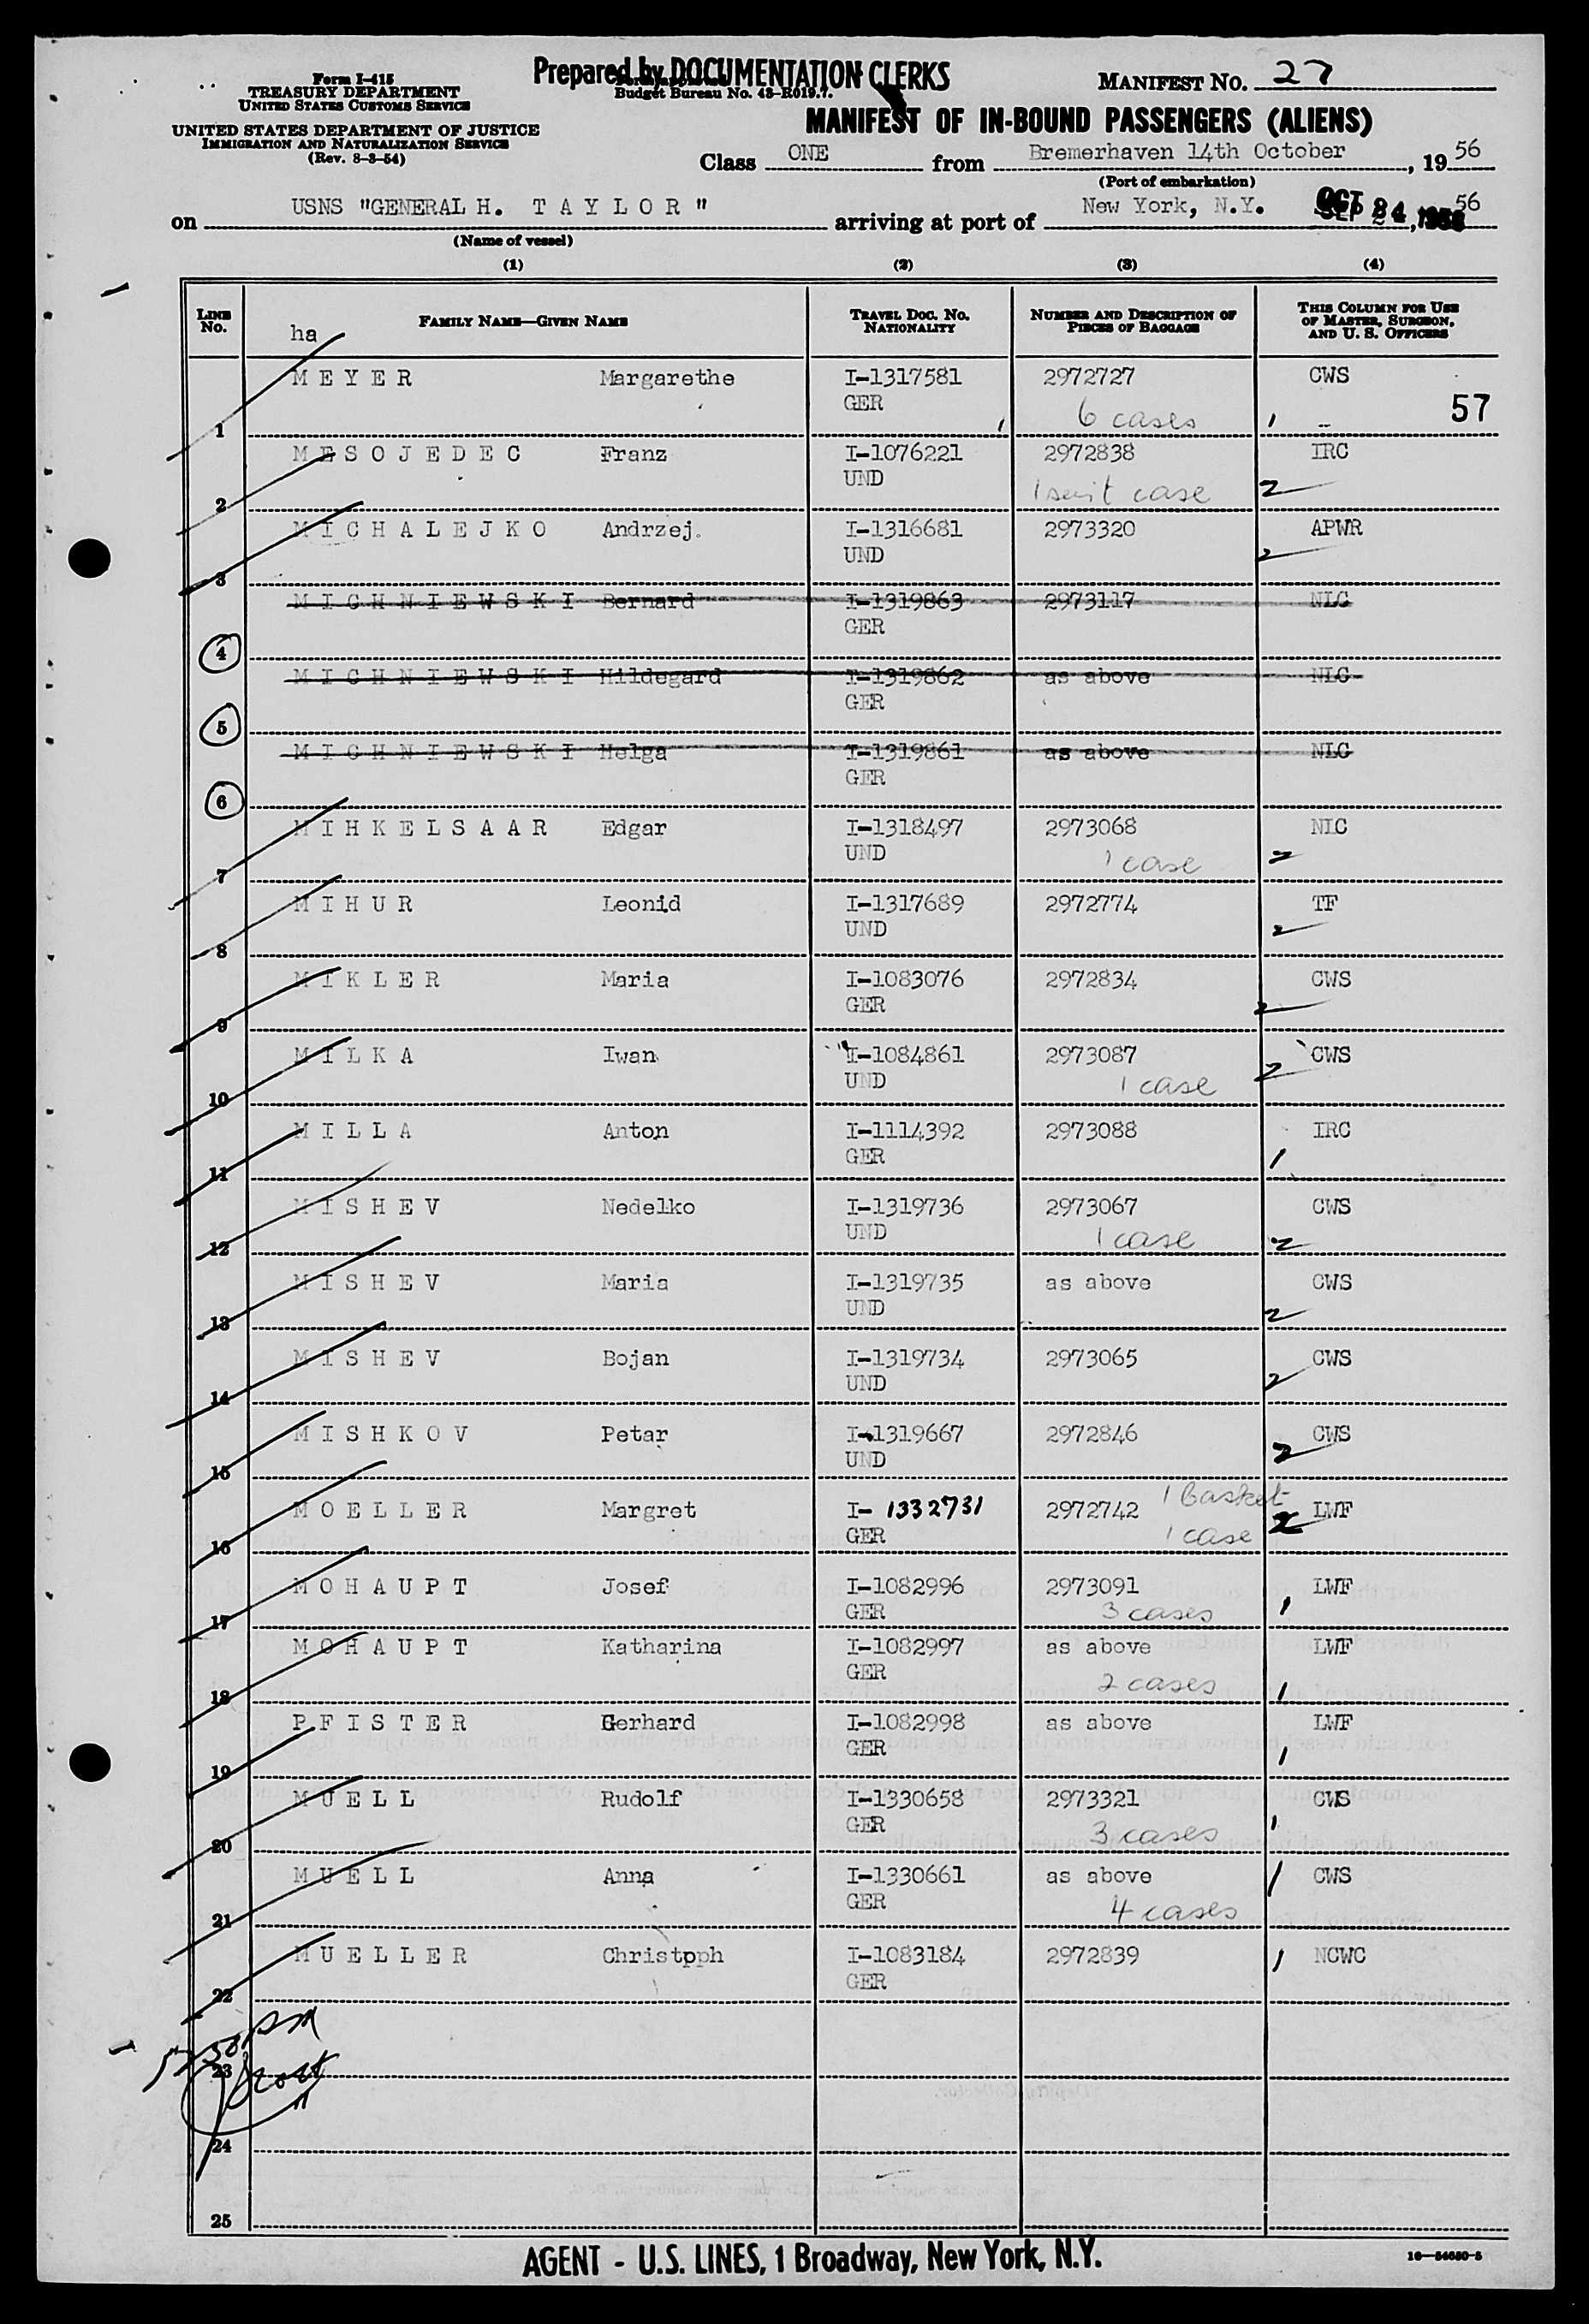 Form I-415
TREASURY DEPARTMENT
UNITED STATES CUSTOMS SERVICE
UNITED STATES DEPARTMENT OF JUSTICE
IMMIGRATION AND NATURALIZATION SERVICE
(Rev. 8-3-54)
Prepared by DOCUMENTATION CLERKS
Budget Bureau No. 43-R019.7.
MANIFEST NO. 27
MANIFEST OF IN-BOUND PASSENGERS (ALIENS)
Class ONE from Bremerhaven 14th October, 19 56
(Port of embarkation)
on USNS "GENERAL H. T A Y L O R" arriving at port of New York, N.Y. OCT 24, 56
(Name of vessel)
(1) (2) (3) (4)
LINE No. FAMILY NAME—GIVEN NAME TRAVEL DOC. NO. NATIONALITY NUMBER AND DESCRIPTION OF PIECES OF BAGGAGE THIS COLUMN FOR USE OF MASTER, SURGEON, AND U. S. OFFICERS
ha
M E Y E R Margarethe I-1317581 2972727 CWS
1 GER 6 cases 1 57
M E S O J E D E C Franz I-1076221 2972838 IRC
2 UND 1 suit case 2
M I C H A L E J K O Andrzej. I-1316681 2973320 APWR
3 UND 2
M I C H N I E W S K I Bernard I-1319863 2973117 NLC
4 GER
M I C H N I E W S K I Hildegard I-1319862 as above NLC
5 GER
M I C H N I E W S K I Helga I-1319861 as above NLC
6 GER
M I H K E L S A A R Edgar I-1318497 2973068 NLC
7 UND 1 case 2
M I H U R Leonid I-1317689 2972774 TF
8 UND 2
M I K L E R Maria I-1083076 2972834 CWS
9 GER 2
M I L K A Iwan I-1084861 2973087 CWS
10 UND 1 case 2
M I L L A Anton I-1114392 2973088 IRC
11 GER 1
M I S H E V Nedelko I-1319736 2973067 CWS
12 UND 1 case 2
M I S H E V Maria I-1319735 as above CWS
13 UND 2
M I S H E V Bojan I-1319734 2973065 CWS
14 UND 2
M I S H K O V Petar I-1319667 2972846 CWS
15 UND 2
M O E L L E R Margret I- 1332731 2972742 1 Basket LWF
16 GER 1 case 2
M O H A U P T Josef I-1082996 2973091 LWF
17 GER 3 cases 1
M O H A U P T Katharina I-1082997 as above LWF
18 GER 2 cases 1
P F I S T E R Gerhard I-1082998 as above LWF
19 GER 1
M U E L L Rudolf I-1330658 2973321 CWS
20 GER 3 cases 1
M U E L L Anna I-1330661 as above CWS
21 GER 4 cases 1
M U E L L E R Christpph I-1083184 2972839 NCWC
22 GER 1
23
24
25
AGENT - U.S. LINES, 1 Broadway, New York, N.Y.
16—54650-5